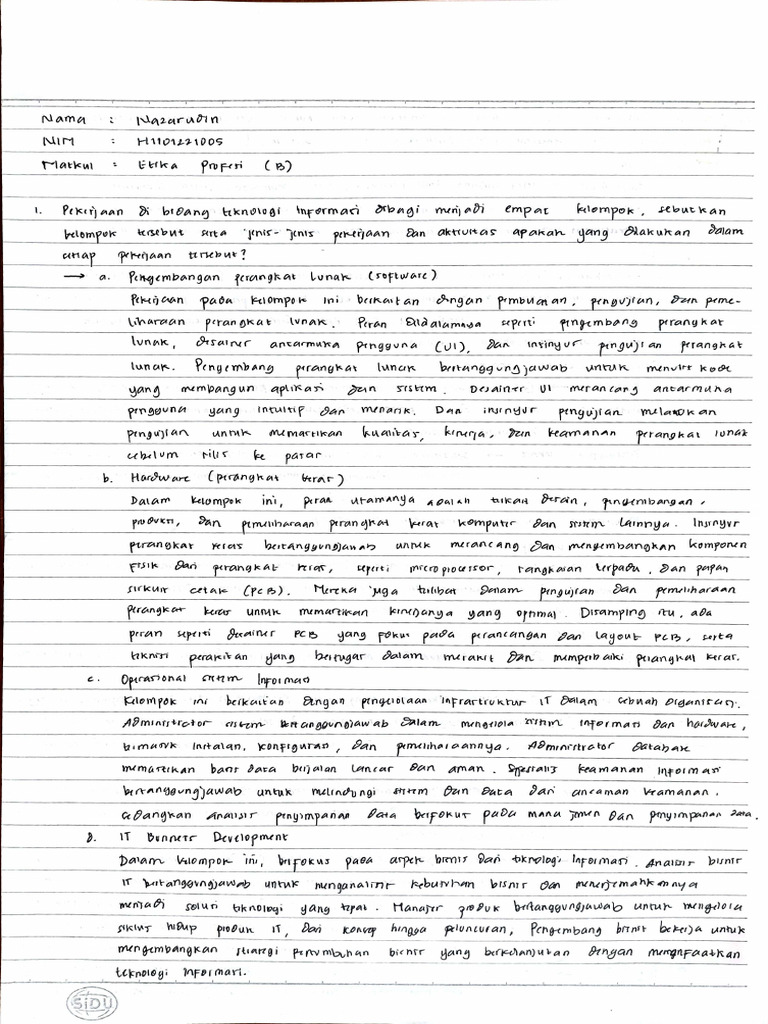 Nama : Nazarudin
NIM : H1101221005
Matkul : Etika Profesi (B)
1. Pekerjaan di bidang teknologi Informasi dibagi menjadi empat kelompok, sebutkan
kelompok tersebut serta jenis-jenis pekerjaan dan aktivitas apakah yang dilakukan dalam
setiap pekerjaan tersebut?
→ a. Pengembangan perangkat Lunak (software)
Pekerjaan pada kelompok ini berkaitan dengan pembuatan, pengujian, dan peme-
liharaan perangkat lunak. Peran didalamnya seperti pengembang perangkat
lunak, desainer antarmuka pengguna (UI), dan insinyur pengujian perangkat
lunak. Pengembang perangkat lunak bertanggungjawab untuk menulis kode
yang membangun aplikasi dan sistem. Desainer UI merancang antarmuka
pengguna yang intuitif dan menarik. Dan insinyur pengujian melakukan
pengujian untuk memastikan kualitas, kinerja, dan keamanan perangkat lunak
sebelum rilis ke pasar.
b. Hardware (perangkat keras)
Dalam kelompok ini, peran utamanya adalah terkait desain, pengembangan,
produksi, dan pemeliharaan perangkat keras komputer dan sistem lainnya. Insinyur
perangkat keras bertanggungjawab untuk merancang dan mengembangkan komponen
fisik dari perangkat keras, seperti microprocessor, rangkaian terpadu, dan papan
sirkuit cetak (PCB). Mereka juga terlibat dalam pengujian dan pemeliharaan
perangkat keras untuk memastikan kinerjanya yang optimal. Disamping itu, ada
peran seperti desainer PCB yang fokus pada perancangan dan layout PCB, serta
teknisi perakitan yang bertugas dalam merakit dan memperbaiki perangkat keras.
c. Operasional sistem Informasi
Kelompok ini berkaitan dengan pengelolaan infrastruktur IT dalam sebuah organisasi.
Administrator sistem bertanggungjawab dalam mengelola sistem informasi dan hardware,
termasuk instalasi, konfigurasi, dan pemeliharaannya. Administrator database
memastikan basis data berjalan lancar dan aman. Spesialis keamanan informasi
bertanggungjawab untuk melindungi sistem dan data dari ancaman keamanan,
sedangkan analisis penyimpanan data berfokus pada manajmen dan penyimpanan data.
d. IT Business Development
Dalam kelompok ini, berfokus pada aspek bisnis dari teknologi Informasi. Analisis bisnis
IT bertanggungjawab untuk menganalisis kebutuhan bisnis dan menerjemahkannya
menjadi solusi teknologi yang tepat. Manajer produk bertanggungjawab untuk mengelola
siklus hidup produk IT, dari konsep hingga peluncuran, Pengembang bisnis bekerja untuk
mengembangkan strategi pertumbuhan bisnis yang berkelanjutan dengan memanfaatkan
teknologi Informasi.
SiDU